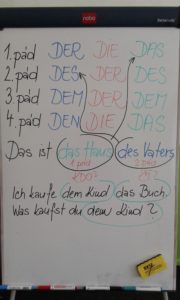 nobo
1. pád DER DIE DAS
2. pád DES DER DES
3. pád DEM DER DEM
4. pád DEN DIE DAS
Das ist das Haus des Vaters
1. pád 2. pád
KDO? ČÍ?
Ich kaufe dem Kind das Buch.
Was kaufst du dem Kind?